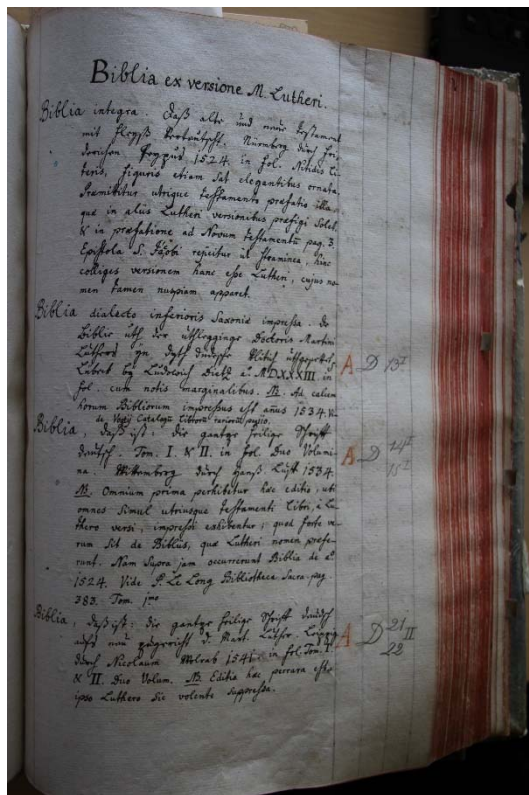 Biblia ex versione M. Lutheri.
Biblia integra. Daß alte und neue Testament
mit fleyß verteutscht. Nürnberg durch Fri-
derichen Peypus 1524. in fol. Nitidis li-
teris, figuris etiam sat elegantibus ornata.
Præmittitur utrique testamento præfatio illa,
quæ in aliis Lutheri versionibus præfigi solet
& in præfatione ad Novum testamentū pag. 3.
Epistola S. Jacobi rejicitur ut straminea, hinc
colliges versionem hanc esse Lutheri, cujus no-
men tamen nuspiam apparet.
Biblia dialecto inferioris Saxoniæ impressa. De
Biblie uth der uthlegginge Doctoris Martini
Luthers yn dyth düdesche vlitich uthgesettet,
Lübeck by Ludewich Dietz aō MDXXXIII in
fol. cum notis marginalibus. NB. Ad calcem
horum Bibliorum impressus est annus 1534. Vi-
de Vogtii Catalogū librorū rariorū
A D 13 I
Biblia, daß ist: die gantze heilige Schrifft
deutsch. Tom. I & II. in fol. Duo Volumi-
na. Wittemberg durch Hanß Lufft 1534.
NB. Omnium prima perhibetur hæc editio, uti
omnes simul utriusque testamenti libri, à Lu-
thero versi, impressi exhibentur; quod forte ve-
rum sit de Bibliis, quæ Lutheri nomen præfe-
runt. Nam supra jam occurrerunt Biblia de aō
1524. Vide P. Le Long Bibliotheca Sacra pag
383. Tom. jmo
A D 14 I
15 I
Biblia, daß ist: die gantze heilige Schrifft deudsch
auffs neu zugericht D. Mart. Luther. Leipzig
durch Nicolaum Wolrab 1541. in fol. Tom. I.
& II. Duo Volum. NB. Editio hæc perrara est,
ipso Luthero sic volente suppressa.
A D 21 II
22